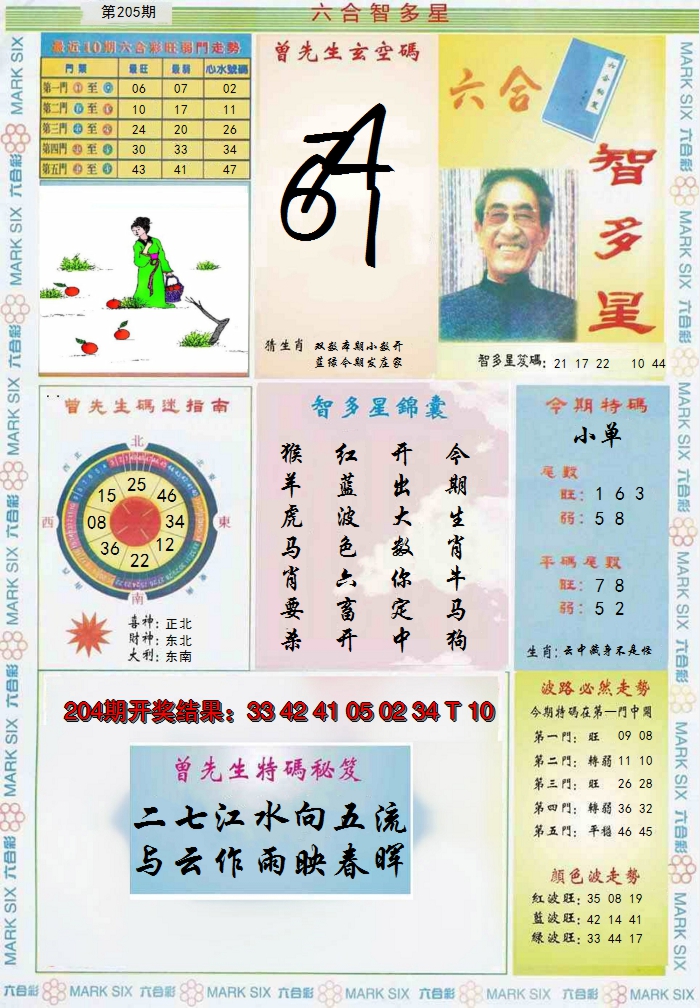 第205期
六合智多星
最近10期六合彩旺弱門走勢
門類 最旺 最弱 心水號碼
第一門 至 06 07 02
第二門 至 10 17 11
第三門 至 24 20 26
第四門 至 30 33 34
第五門 至 43 41 47
曾先生玄空碼
猜生肖 双数本期小数开
蓝绿今期发庄家
六合
智多星
智多星笈碼: 21 17 22 10 44
曾先生碼迷指南
北
西
東
南
25
46
34
12
22
36
08
15
喜神: 正北
財神: 东北
大利: 东南
智多星錦囊
今期生肖牛马狗
开出大数你定中
红蓝波色六畜开
猴羊虎马肖要杀
今期特碼
小单
尾数
旺: 1 6 3
弱: 5 8
平碼尾数
旺: 7 8
弱: 5 2
生肖: 云中藏身不是怪
204期开奖结果: 33 42 41 05 02 34 T 10
曾先生特碼秘笈
二七江水向五流
与云作雨映春晖
波路必然走勢
今期特碼在第一門中開
第一門: 旺 09 08
第二門: 轉弱 11 10
第三門: 旺 26 28
第四門: 轉弱 36 32
第五門: 平穩 46 45
顔色波走勢
紅波旺: 35 08 19
藍波旺: 42 14 41
綠波旺: 33 44 17
MARK SIX 六合彩 MARK SIX 六合彩 MARK SIX 六合彩 MARK SIX 六合彩